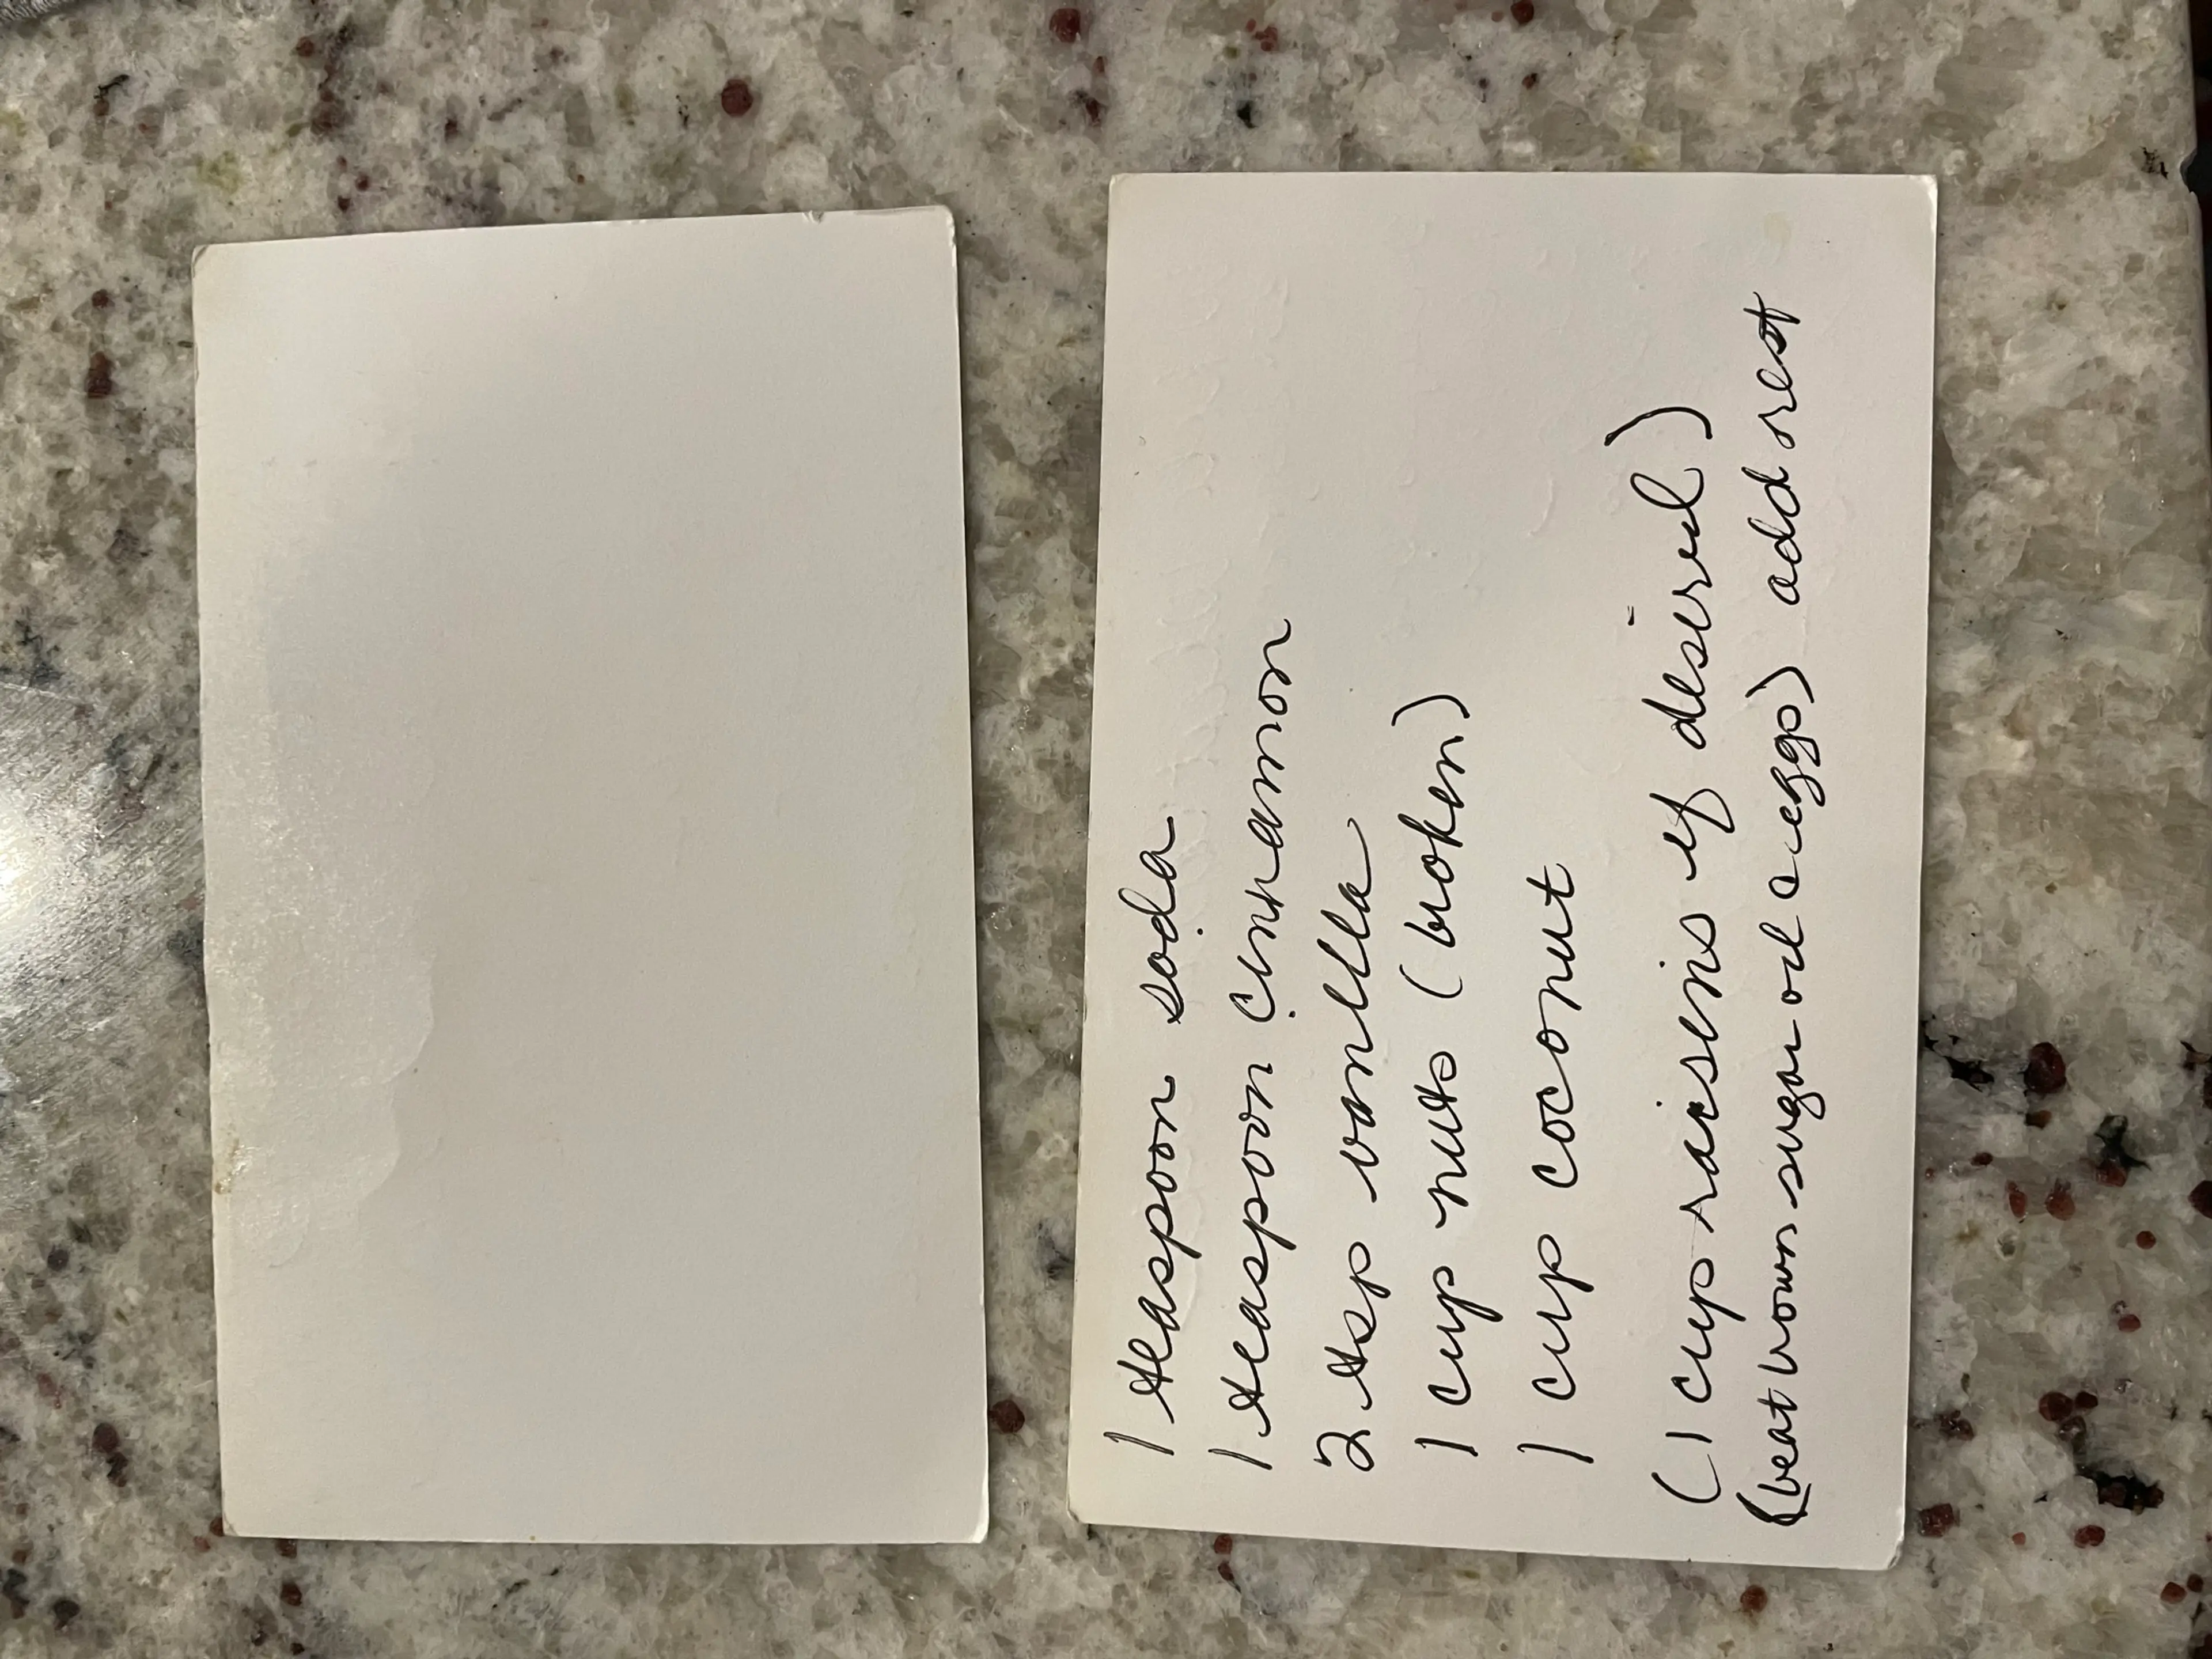 1 teaspoon soda
1 teaspoon cinnamon
2 tsp vanilla
1 cup nuts (broken)
1 cup coconut
(1 cup raisens if desired)
(beat brown sugar oil & eggs) add rest